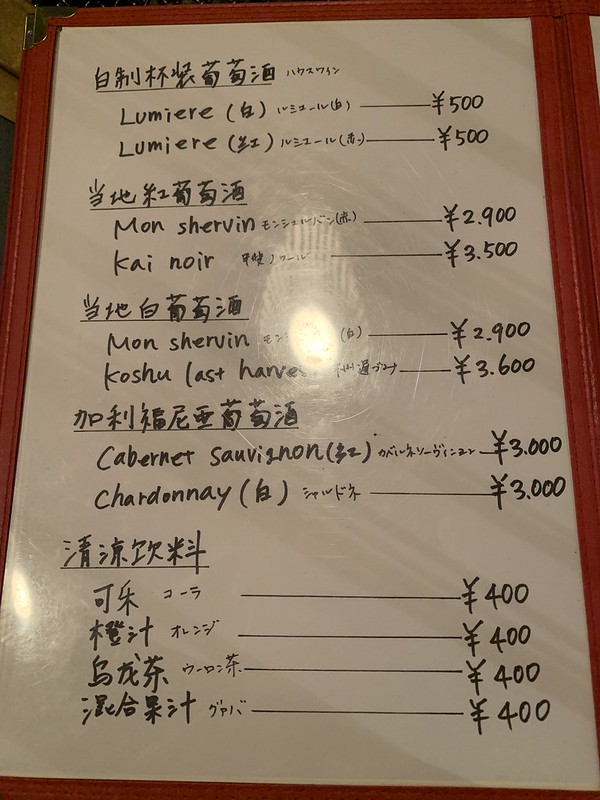 自制杯装葡萄酒 ハウスワイン
Lumiere (白) ルミエール(白) ¥500
Lumiere (红) ルミエール(赤) ¥500
当地红葡萄酒
Mon shervin モンシェルバン(赤) ¥2.900
Kai noir 甲斐ノワール ¥3.500
当地白葡萄酒
Mon shervin (白) ¥2.900
Koshu last harvest ¥3.600
加利福尼亚葡萄酒
Cabernet sauvignon (红) カベルネソーヴィニヨン ¥3.000
Chardonnay (白) シャルドネ ¥3.000
清涼饮料
可乐 コーラ ¥400
橙汁 オレンジ ¥400
乌龙茶 ウーロン茶 ¥400
混合果汁 グァバ ¥400